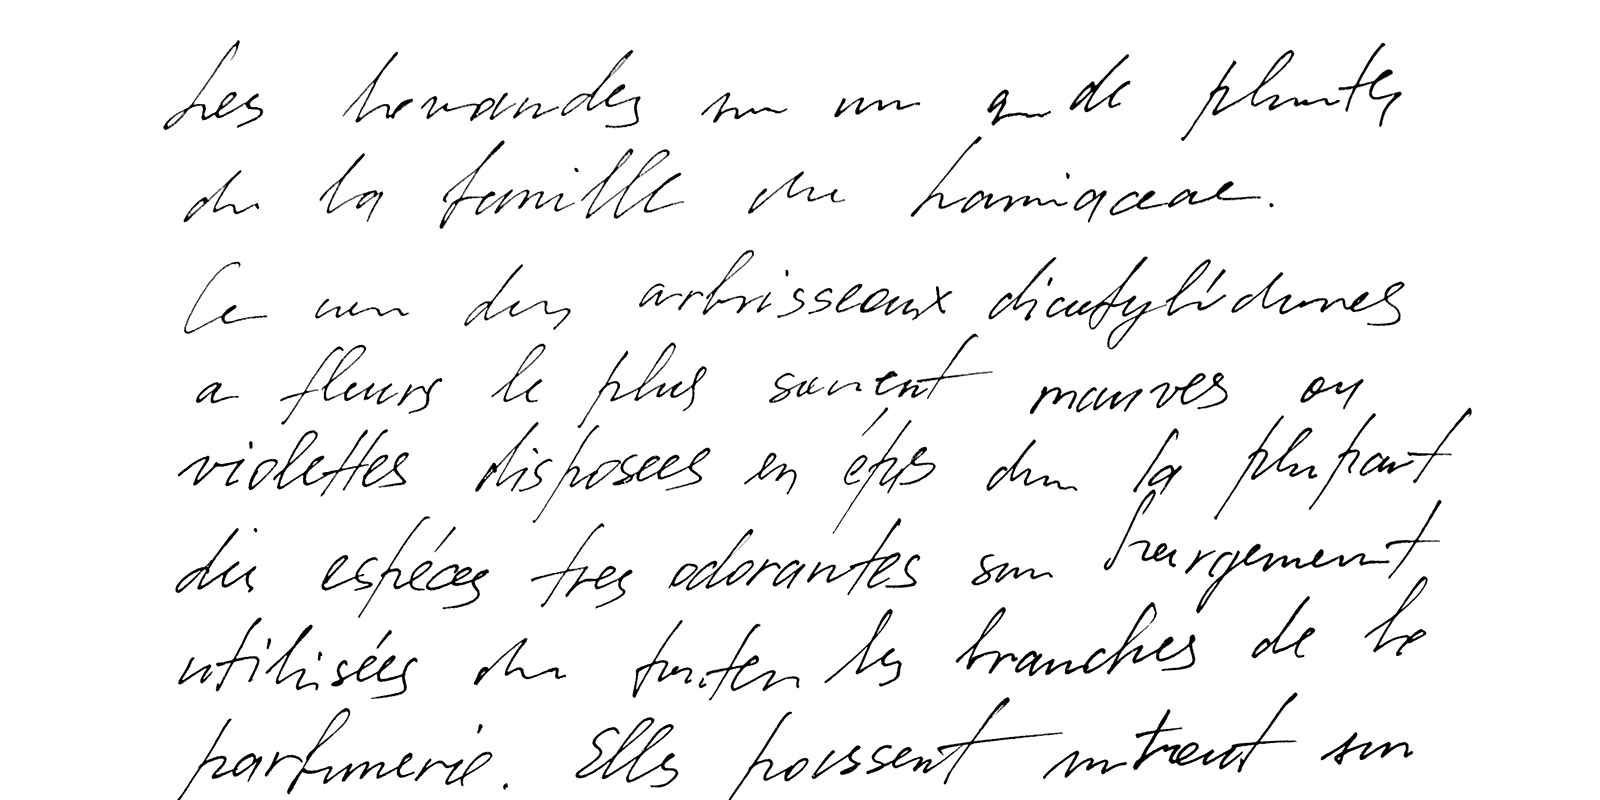 Les lavandes sont un genre de plantes
de la famille des Lamiaceae.
Ce sont des arbrisseaux dicotylédones
a fleurs le plus souvent mauves ou
violettes disposées en épis dont la plupart
des espéces tres odorantes sont largement
utilisées dans toutes les branches de la
parfumerie. Elles poussent surtout sur